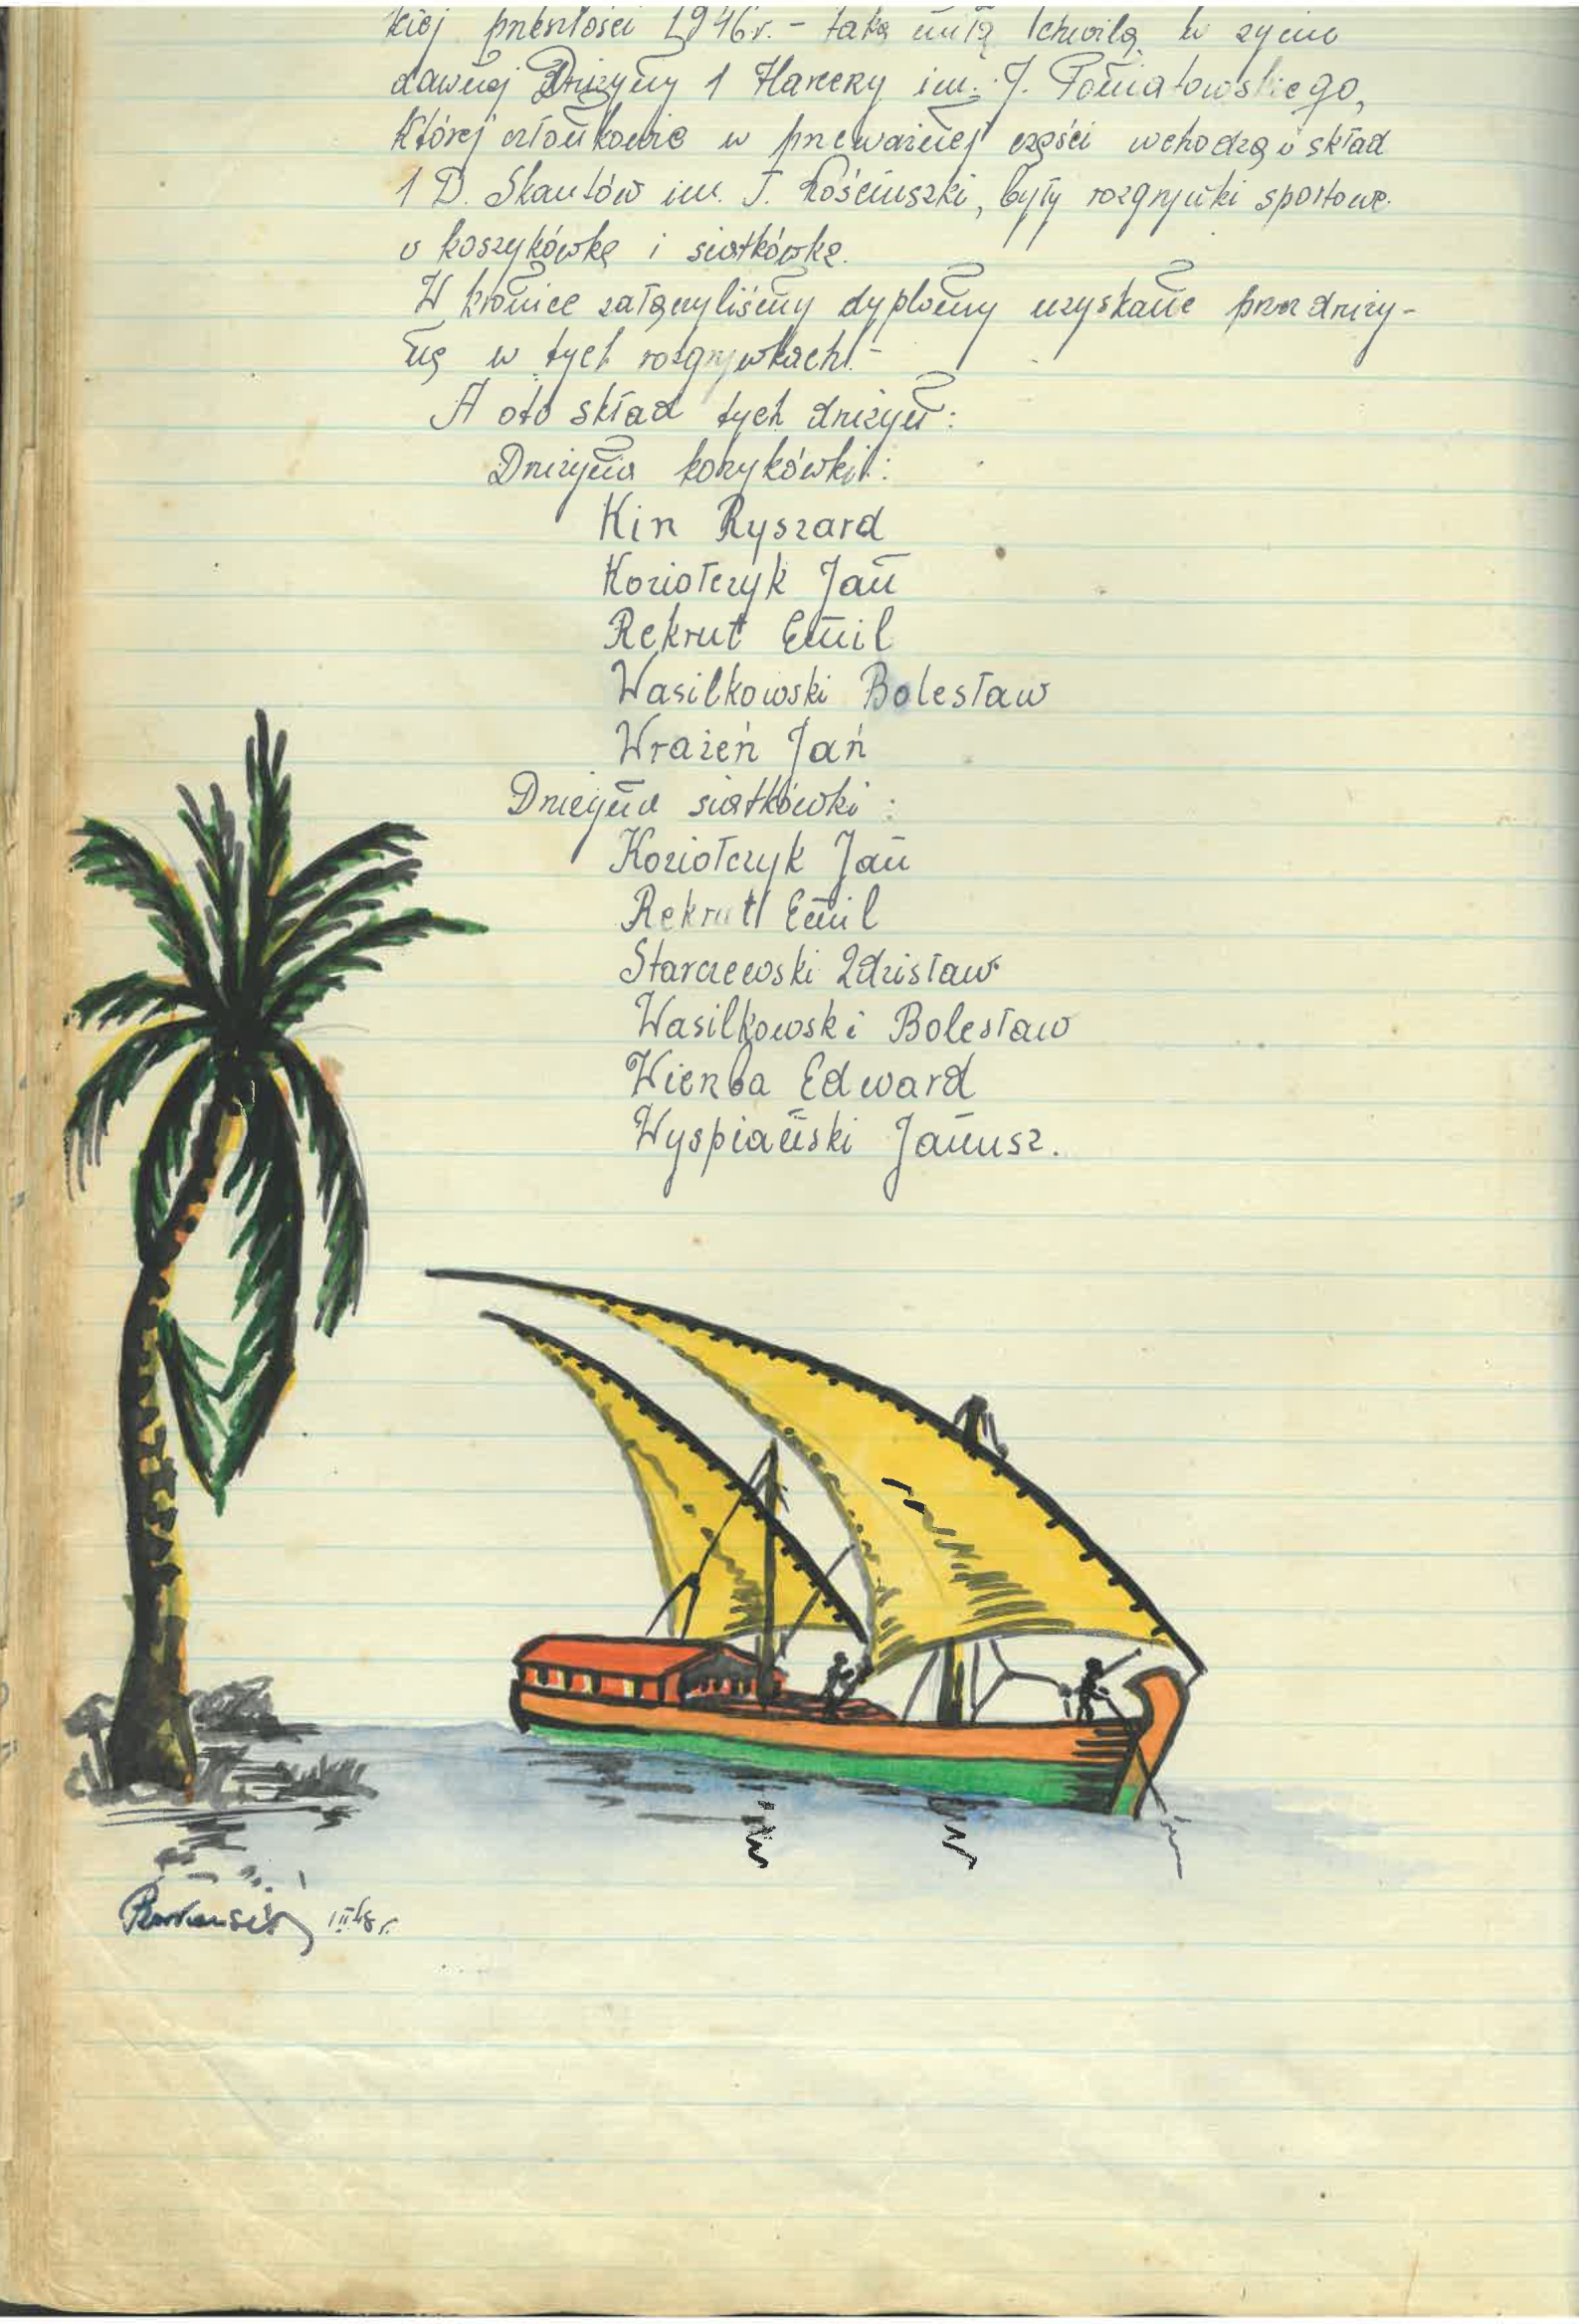 kiej przeszłości 1946r. - taką miłą chwilą w życiu
dawnej Drużyny 1 Harcerzy im. J. Poniatowskiego,
której członkowie w przeważnej części wchodzą w skład
1 D. Skautów im. T. Kościuszki, były rozgrywki sportowe
w koszykówkę i siatkówkę.
W kronice załączyliśmy dyplomy uzyskane przez druży-
nę w tych rozgrywkach. -
A oto skład tych drużyn:
Drużyna koszykówki:
Kin Ryszard
Koziołczyk Jan
Rekrut Emil
Wasilkowski Bolesław
Wrażeń Jan
Drużyna siatkówki:
Koziołczyk Jan
Rekrut Emil
Starczewski Zdzisław
Wasilkowski Bolesław
Wierzba Edward
Wyspiański Janusz.
III 48 r.